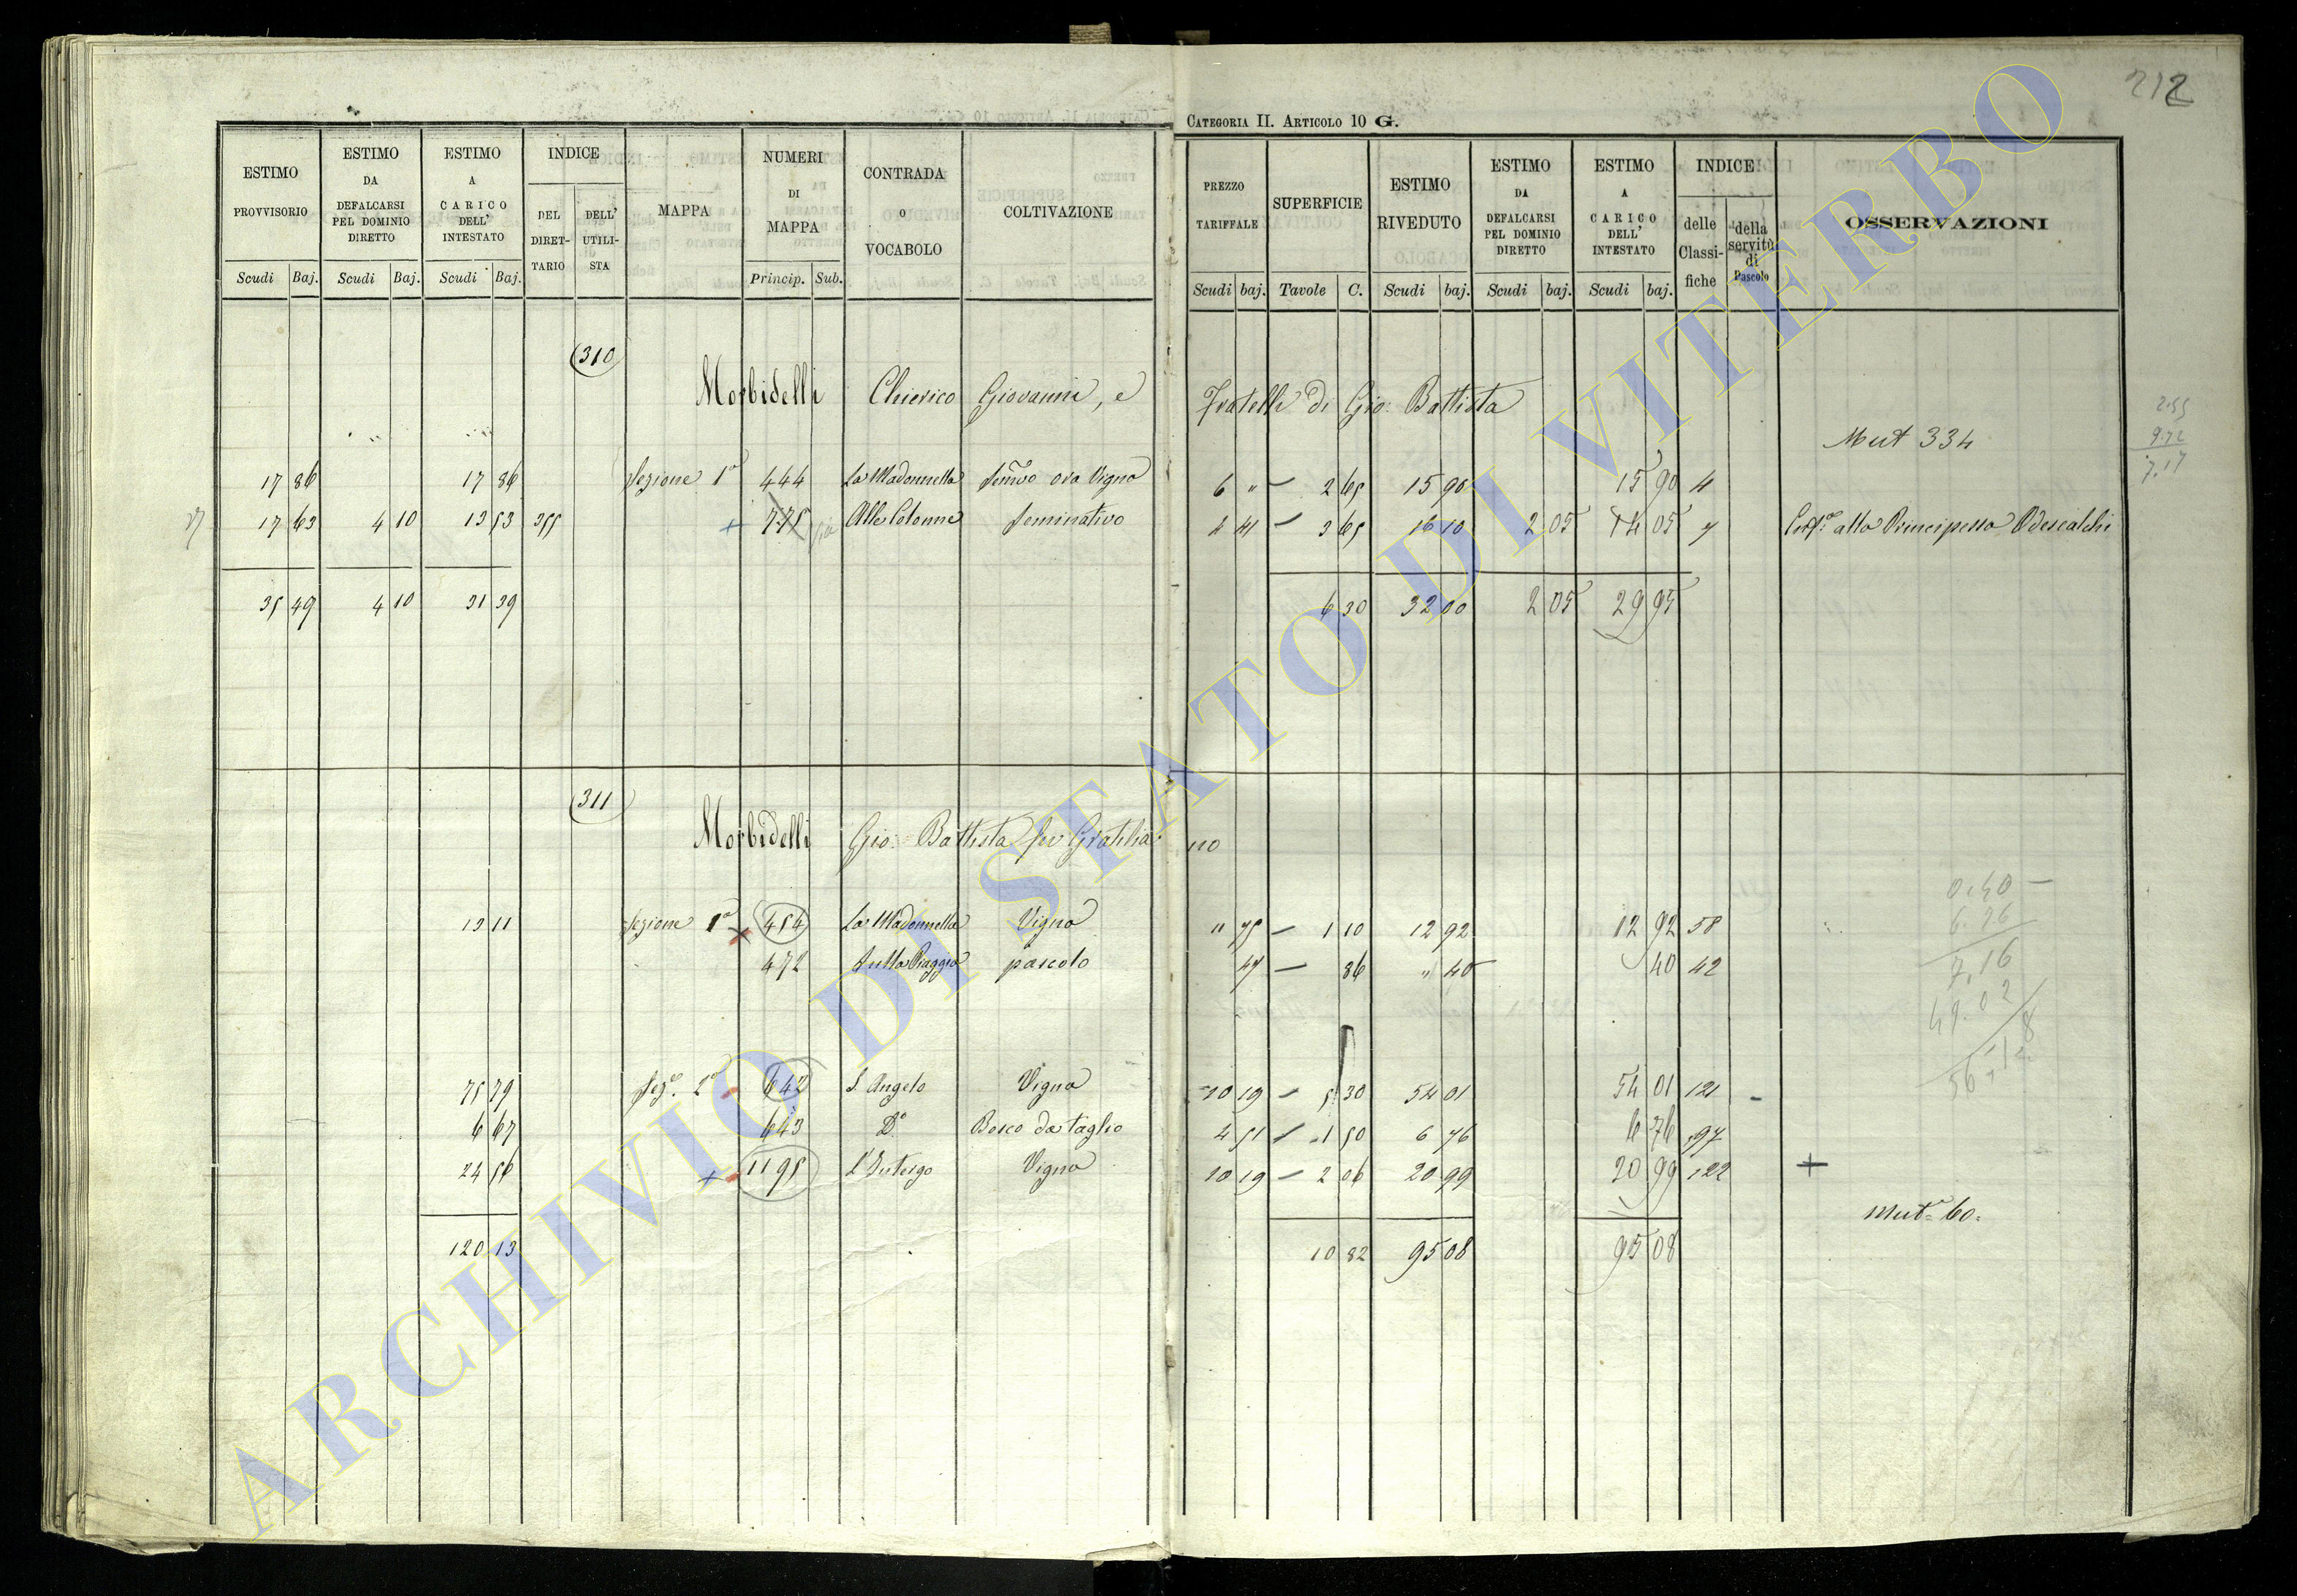 212
CATEGORIA II. ARTICOLO 10 G.
ESTIMO PROVVISORIO
Scudi Baj.
ESTIMO DA DEFALCARSI PEL DOMINIO DIRETTO
Scudi Baj.
ESTIMO A CARICO DELL' INTESTATO
Scudi Baj.
INDICE
DEL DIRET-TARIO
DELL' UTILI-STA
MAPPA
NUMERI DI MAPPA
Princip. Sub.
CONTRADA O VOCABOLO
COLTIVAZIONE
PREZZO TARIFFALE
Scudi baj.
SUPERFICIE
Tavole C.
ESTIMO RIVEDUTO
Scudi baj.
ESTIMO DA DEFALCARSI PEL DOMINIO DIRETTO
Scudi baj.
ESTIMO A CARICO DELL' INTESTATO
Scudi baj.
INDICE
delle Classi-fiche
della servitù di Pascolo
OSSERVAZIONI
310
Morbidelli Chierico Giovanni, e Fratelli di Gio: Battista
Mut 334
2.55
9.72
7.17
17 86 17 86 Sezione 1a 444 La Madonnella Semvo ora Vigna 6 " — 2 65 15 90 15 90 4
17 63 4 10 13 53 355 + 775 Alle Colonne Seminativo 4 41 — 3 65 16 10 2 05 14 05 7 alla Principessa Odescalchi
35 49 4 10 31 39 6 30 32 00 2 05 29 95
311
Morbidelli Gio: Battista fu Gratiliano
13 11 Sezione 1a 454 La Madonnella Vigna 11 75 — 1 10 12 92 12 92 58
472 Sulla Piaggia pascolo 47 — 86 " 40 40 42
75 79 Seze 2a 642 S. Angelo Vigna 10 19 — 5 30 54 01 54 01 121
6 67 643 Do Bosco da taglio 4 51 — 1 50 6 76 6 76 97
24 56 + 1195 Vigna 10 19 — 2 06 20 99 20 99 122 +
Muta 60.
120 13 10 82 95 08 95 08
0.40 —
6.76
7.16
49.02
56.18
ARCHIVIO DI STATO DI VITERBO